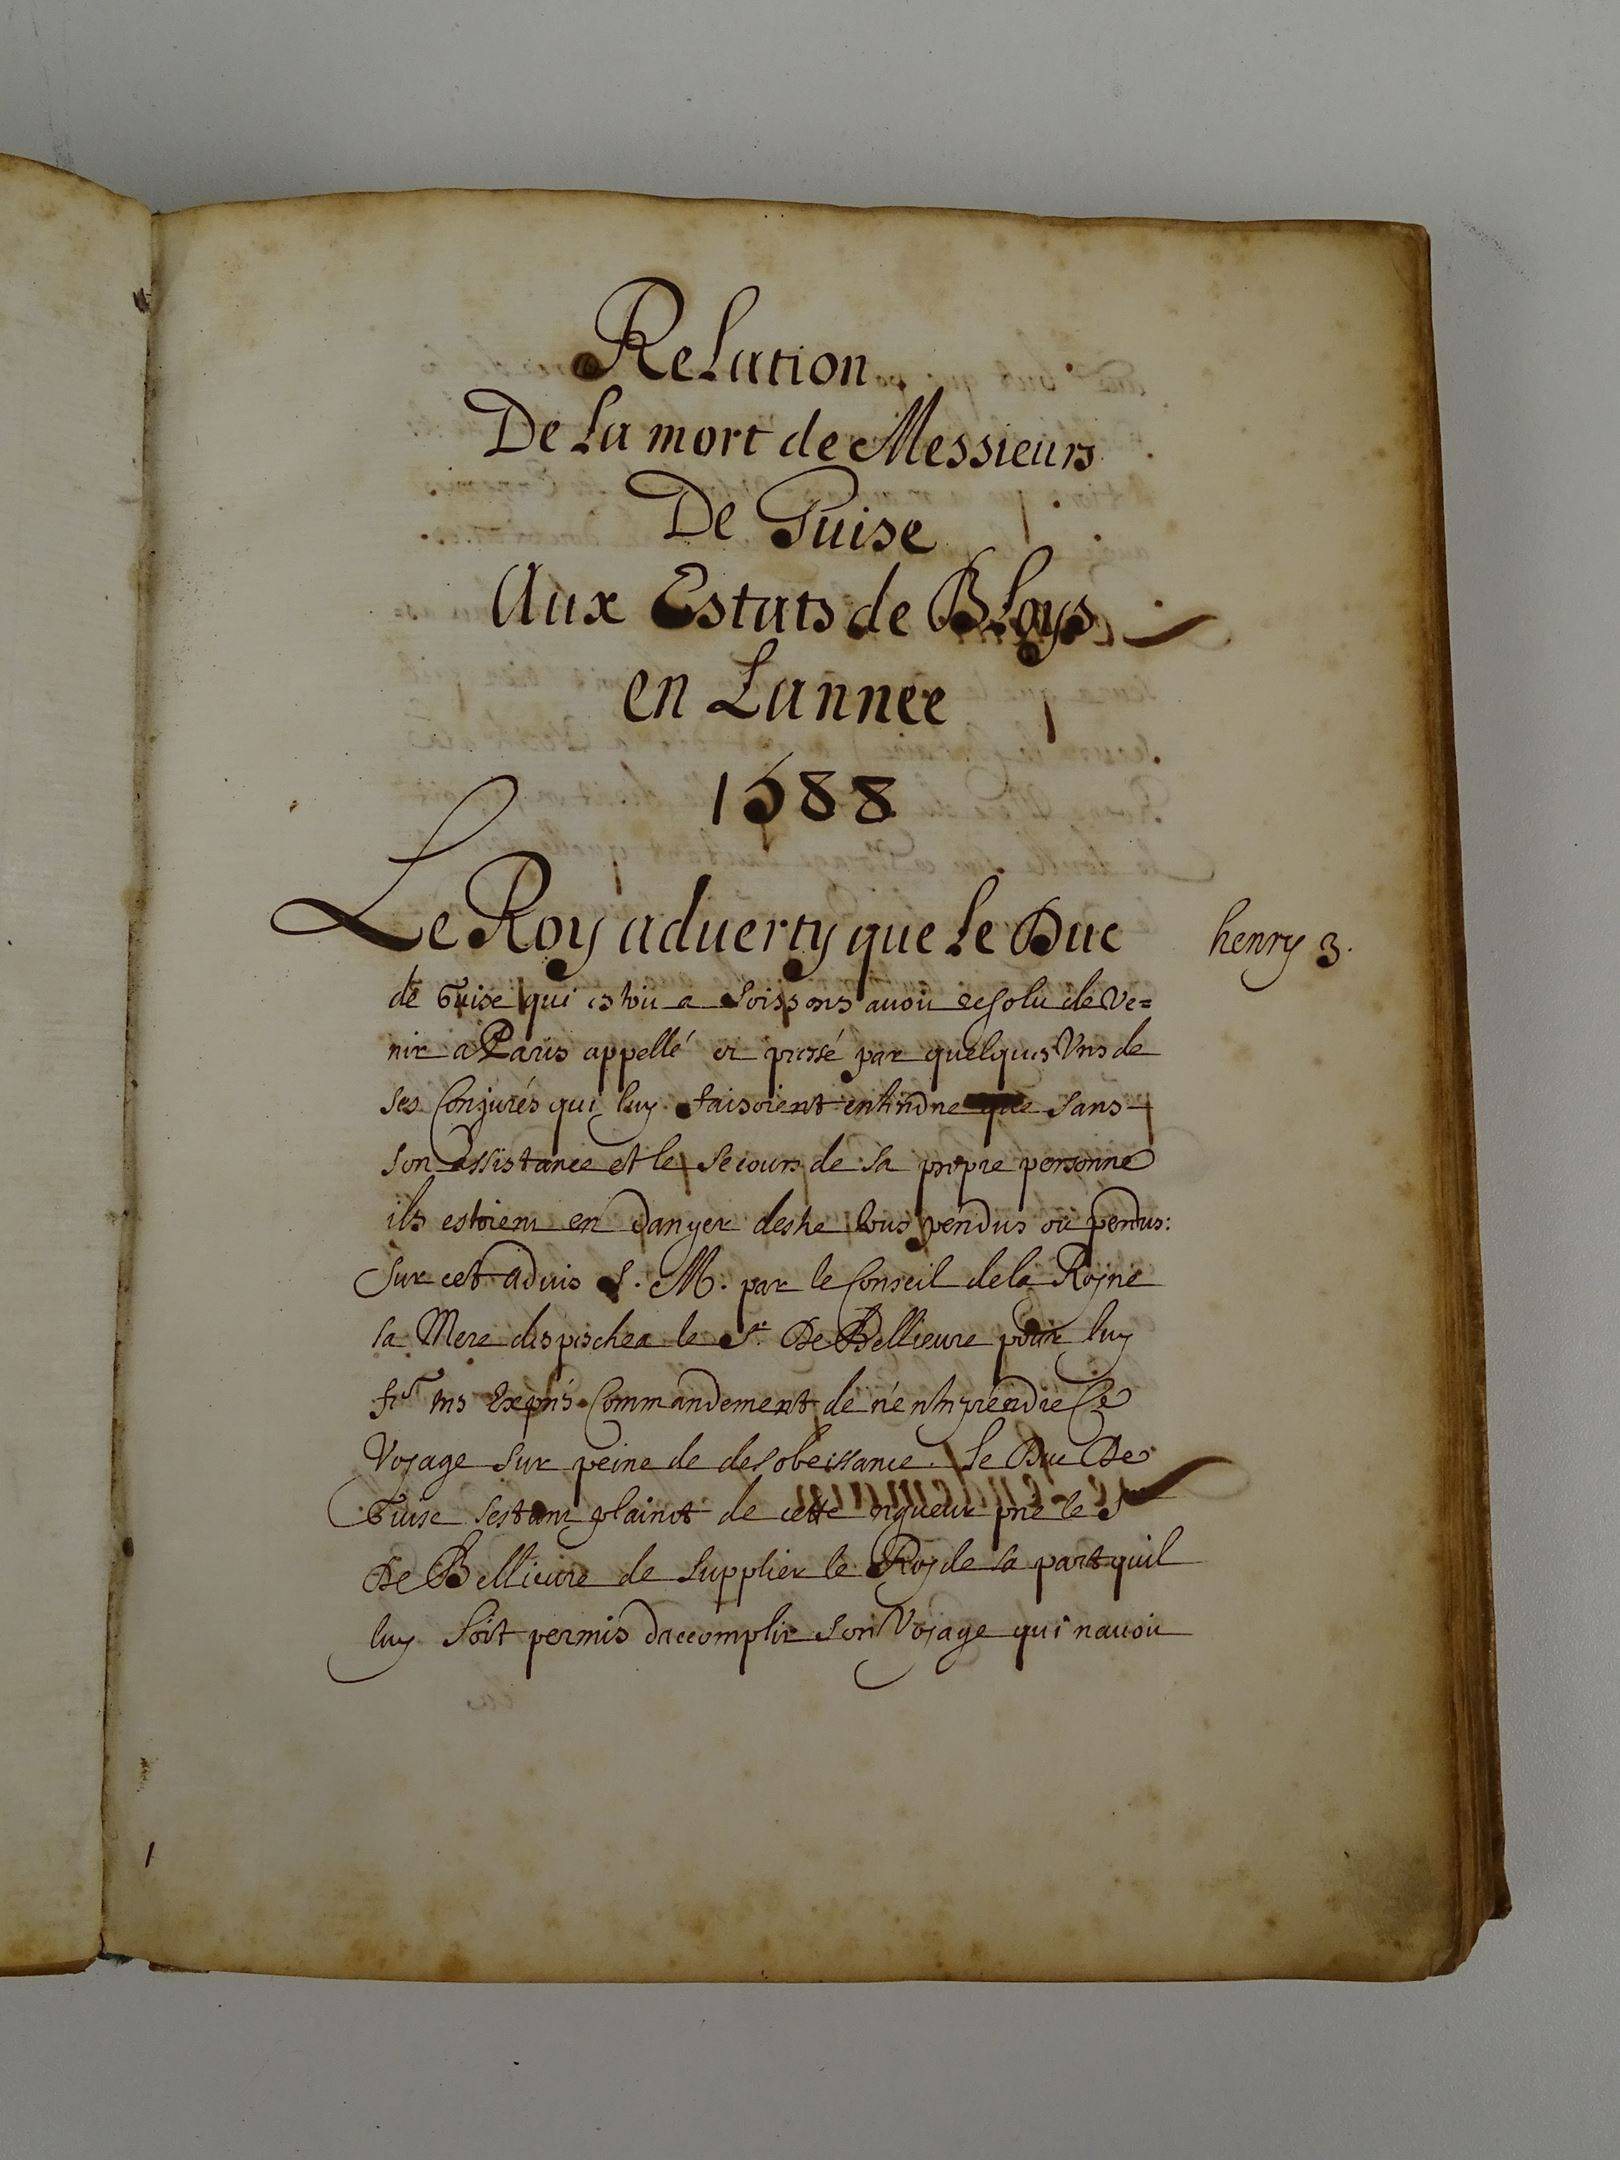 Relation
De La mort de Messieurs
De Guise
Aux Estats de BLoys
en Lannee
1588
Le Roy aduerty que Le Duc
henry 3.
de Guise qui estoit a Soissons auoit resolu de ve=
nir a Paris appellé et pressé par quelques Vns de
ses Conjurés qui luy faisoient entendre que sans
son assistance et le secours de sa propre personne
ils estoient en danger destre tous pendus ou perdus:
Sur cet aduis S. M. par le Conseil de la Royne
sa Mere despescha le Sr. De Bellieure pour luy
Exprés Commandement de n'entreprendre Ce
Voyage sur peine de desobeissance. Le Duc De
Guise sestant plainct de cette rigueur prie le Sr
De Bellieure de supplier le Roy de sa part quil
luy soit permis daccomplir son Voyage qui nauoit